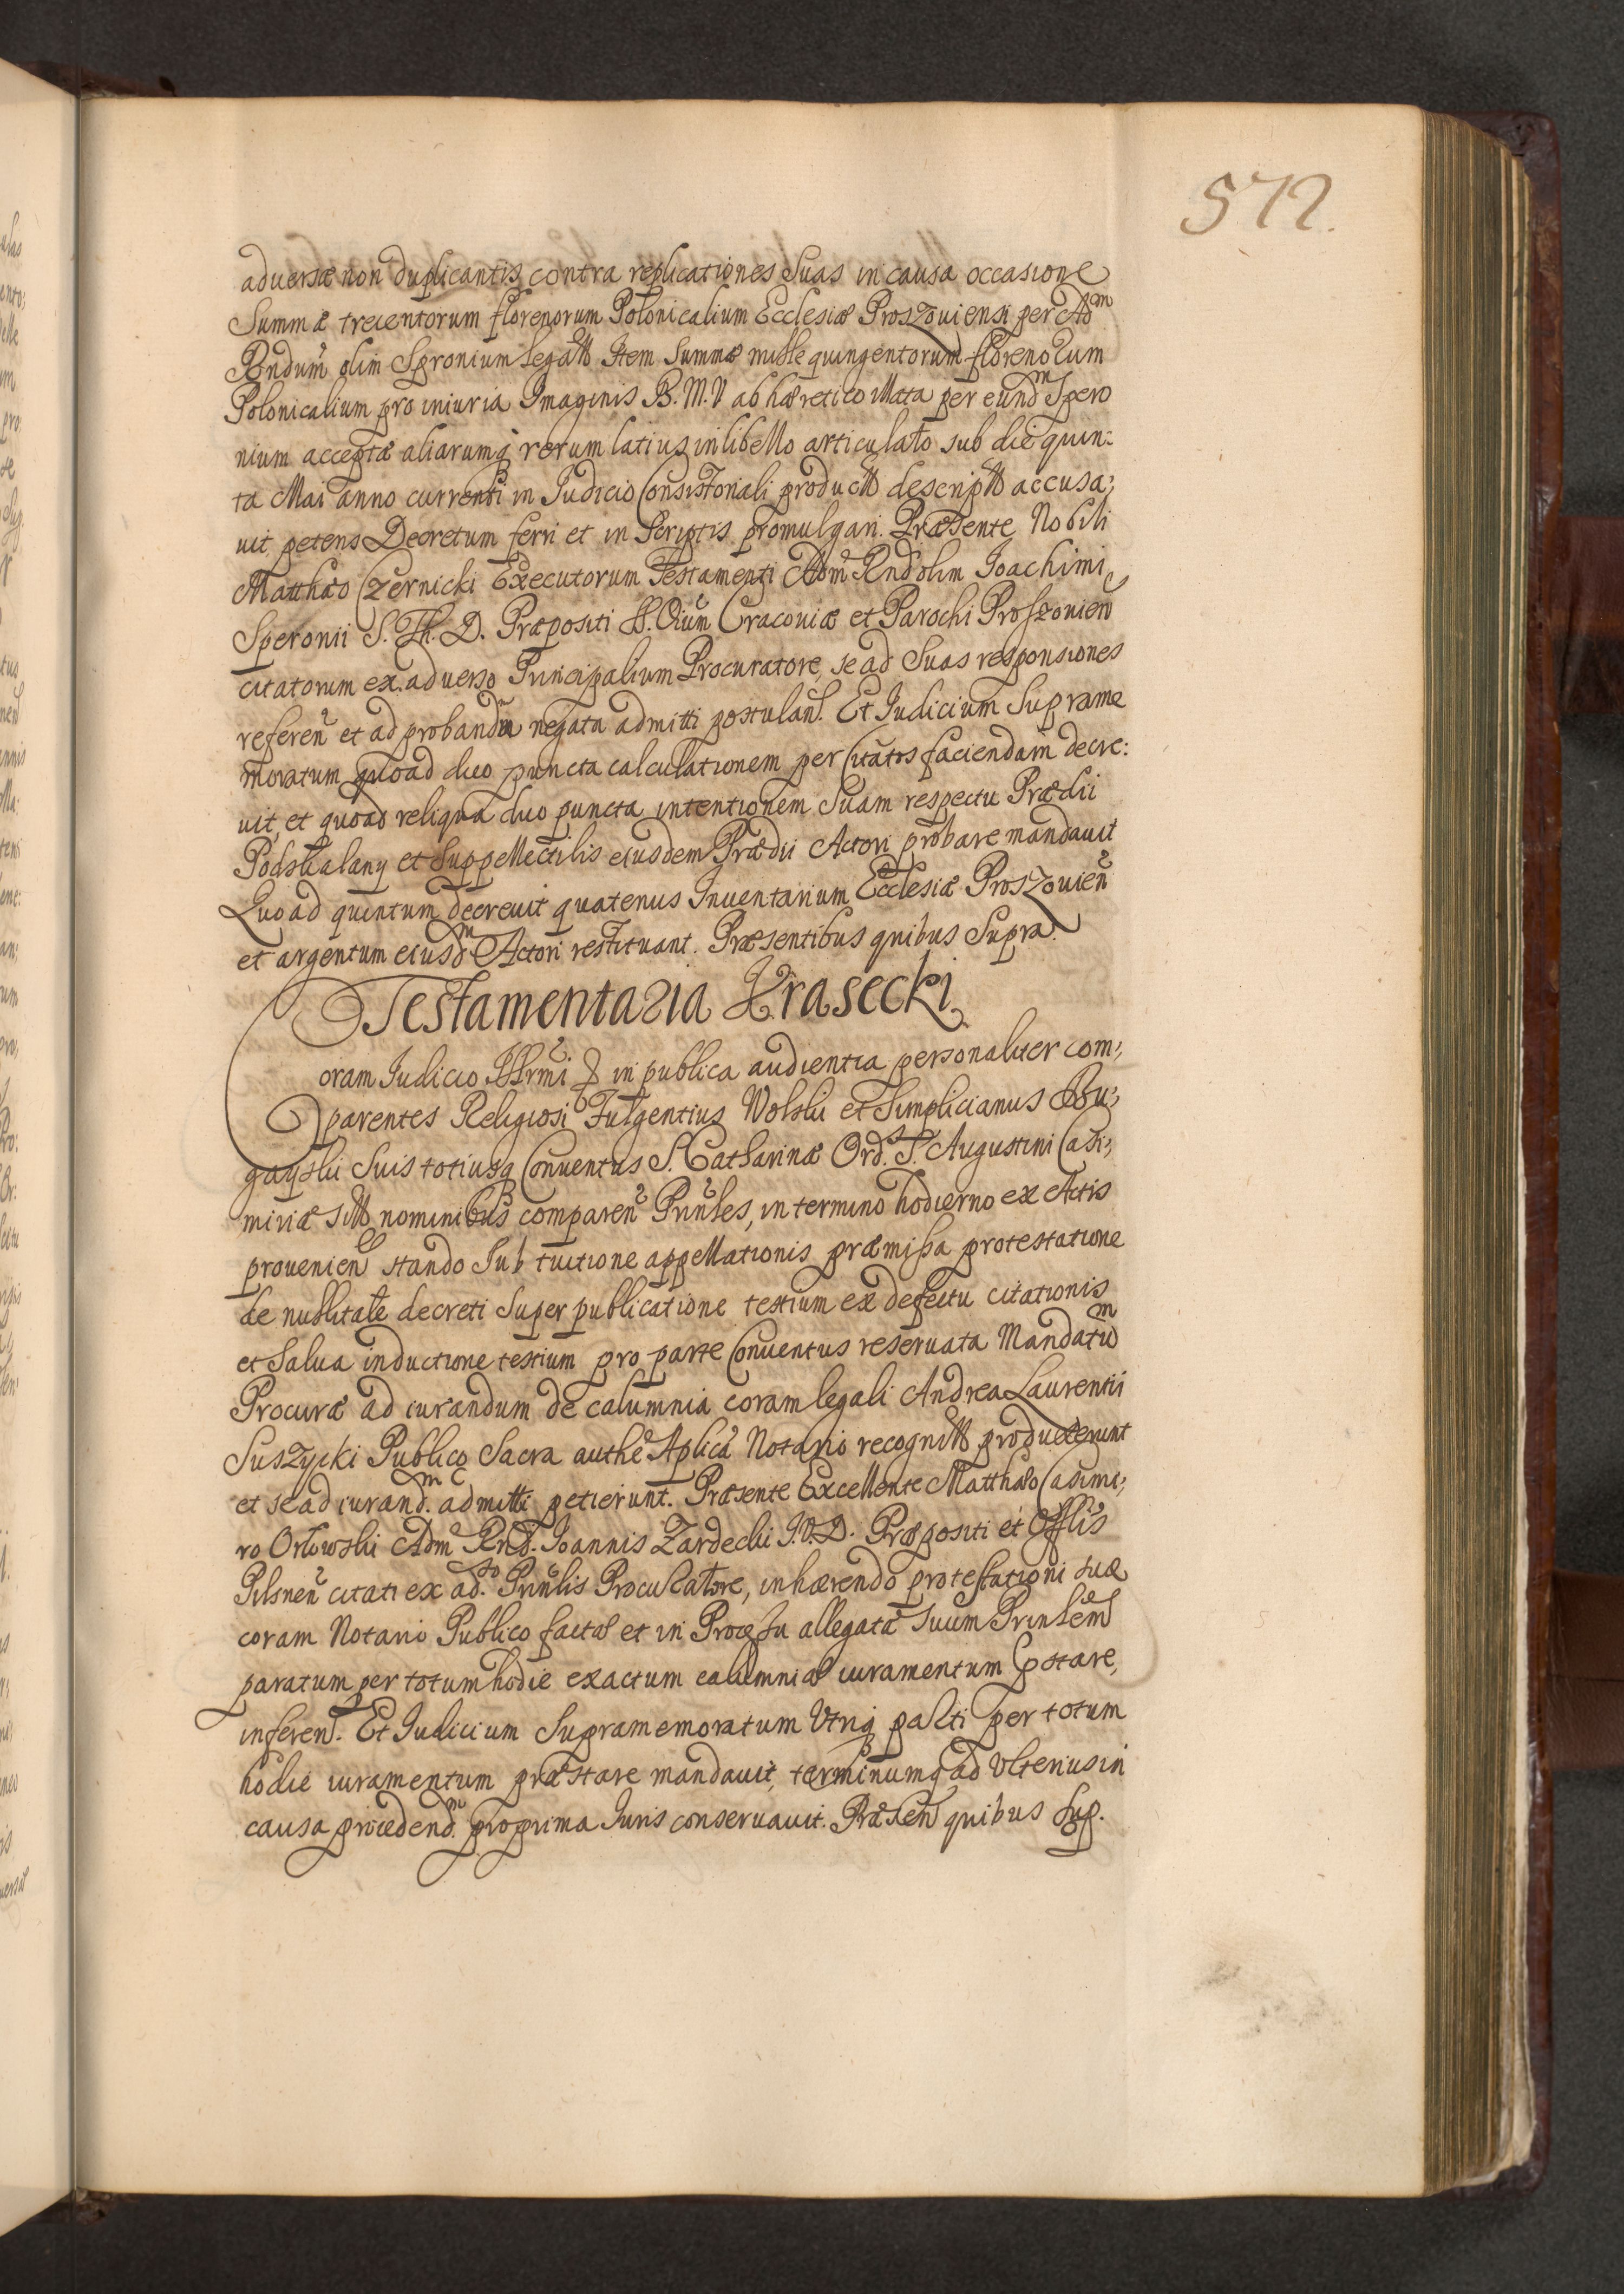 572.
adversæ non duplicantis contra replicationes Suas in causa occasione
Summæ trecentorum florenorum Polonicalium Ecclesiæ Proszoviensi per Adm
Rndum olim Spronium legatæ Item Summæ mille quingentorum florenorum
Polonicalium pro iniuria Imaginis B. M. V ab hæretico illata per eundm Spero
nium acceptæ aliarumq rerum latius in libello articulato sub die quin:
ta Mai anno currenti in Judicio Consistoriali product descript accusa;
uit petens Decretum ferri et in Scriptis promulgari. Præsente Nobili
Matthæo Czernicki Executorum Testamenti Adm Rnd olim Joachimi
Speronii S. Th. D. Præpositi SS. Oium Cracoviæ et Parochi Proszovien
citatorum ex adverso Principalium Procuratore, se ad Suas responsiones
referen et ad probandū negata admitti postulan. Et Judicium Suprame
moratum quoad duo puncta calculationem per Citatos faciendam decre:
uit, et quoad reliqua duo puncta intentionem Suam respectu Prædii
Podskalany et Suppellectilis eiusdem Prædii Actori probare mandauit
Quoad quintum decreuit quatenus Inuentarium Ecclesiæ Proszouien
et argentum eiusdm Actori restituant. Præsentibus quibus Supra.
Testamentaria Krasecki
Coram Judicio Illrmi in publica audientia personaliter com;
parentes Religiosi Fulgentius Wolski et Simplicianus Bu;
gayski Suis totiusq Conuentus S. Catharinæ Ord. S. Augustini Casi;
miriæ nominibus comparen Prinles, in termino hodierno ex Actis
prouenien stando Sub tuitione appellationis præmissa protestatione
de nullitate decreti Super publicatione testium ex defectu citationis
et Salua inductione testium pro parte Conuentus reseruata Mandatum
Procuræ ad iurandum de calumnia coram legali Andrea Laurentii
Suszycki Publico Sacra authe Aplica Notario recognit produxerunt
et se ad iurandm admitti petierunt. Præsente Excellente Matthæo Casimi;
ro Orłowski Adm Rnd. Joannis Zardecki J.V.D. Præpositi et Offlis
Pilsnen citati ex adso Prinlis Procuratore, inhærendo protestationi suæ
coram Notario Publico factæ et in Processu allegatæ Suum Prinlem
paratum per totum hodie exactum calumniæ iuramentum præstare,
inferen. Et Judicium Supramemoratum Utriq parti per totum
hodie iuramentum præstare mandauit, terminumq ad Ulterius in
causa procedendm pro prima Juris conseruauit. Præsen quibus Sup.